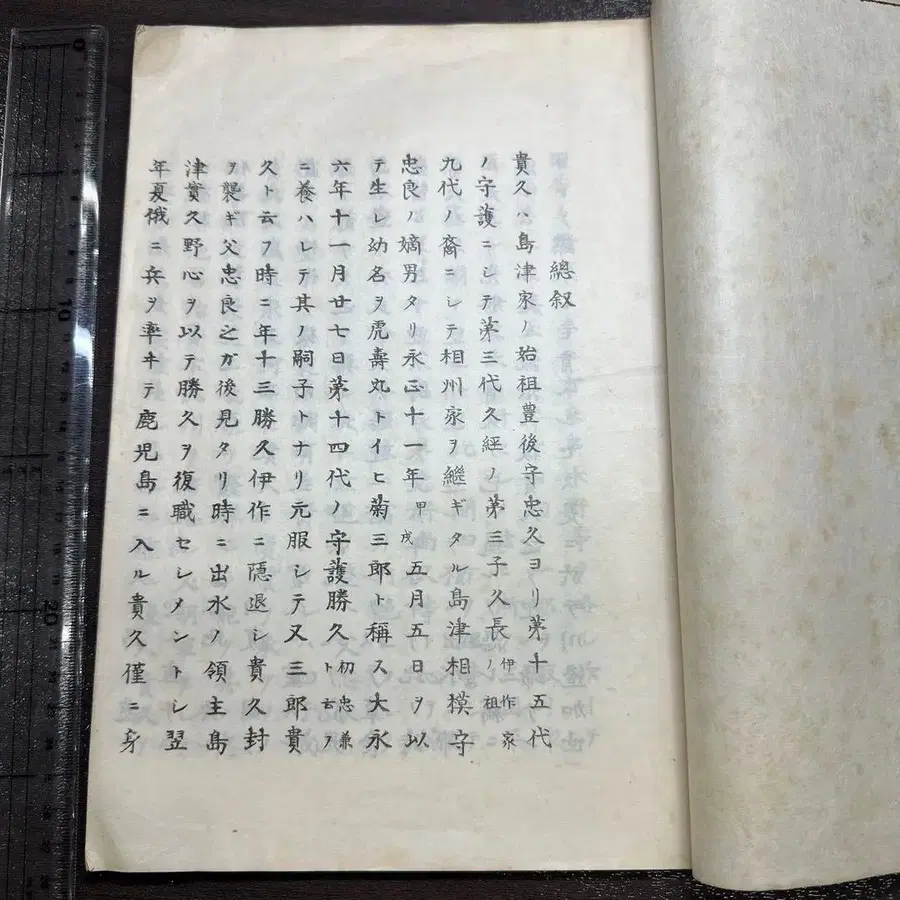 總叙
貴久ハ島津家ノ始祖豊後守忠久ヨリ苐十五代
ノ守護ニシテ苐三代久経ノ苐三子久長伊作家ノ祖
九代ノ裔ニシテ相州家ヲ繼ギタル島津相模守
忠良ノ嫡男タリ永正十一年甲戌五月五日ヲ以
テ生レ幼名ヲ虎壽丸トイヒ菊三郎ト稱ス大永
六年十一月廿七日苐十四代ノ守護勝久初忠兼ト云フ
ニ養ハレテ其ノ嗣子トナリ元服シテ又三郎貴
久ト云フ時ニ年十三勝久伊作ニ隠退シ貴久封
ヲ襲ギ父忠良之ガ後見タリ時ニ出水ノ領主島
津實久野心ヲ以テ勝久ヲ復職セシメントシ翌
年夏俄ニ兵ヲ率ヰテ鹿児島ニ入ル貴久僅ニ身